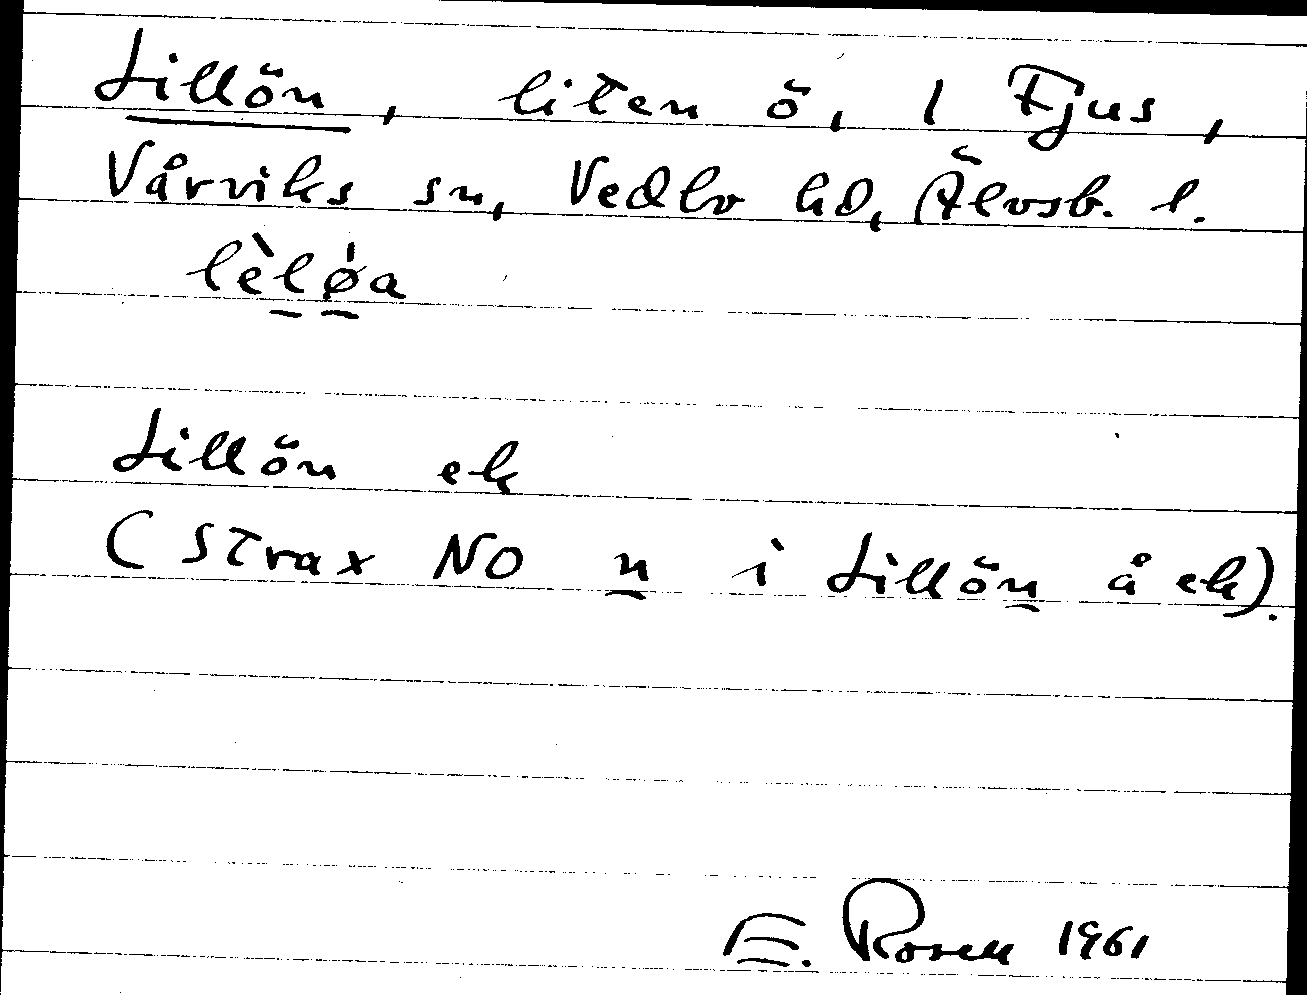 Lillön, liten ö, i Fjus,
Vårviks sn, Vedbo hd, Älvsb. l.
lèløa
Lillön ek
(Strax NO n i Lillön å ek).
E. Rosell 1961